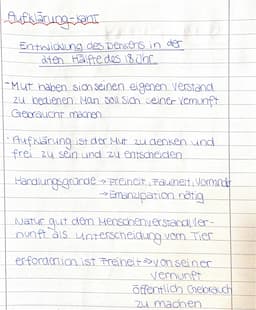 Aufklärung - Kant
Entwicklung des Denkens in der
2ten Hälfte des 18 Jhr.
- Mut haben sich seinen eigenen Verstand
zu bedienen. Man soll sich seiner Vernunft
Gebraucht machen
- Aufklärung ist der Mut zu denken und
frei zu sein und zu entscheiden
Handlungsgründe → Freiheit, Faulheit, Vormund
→ Emanzipation nötig
Natur gut dem Menschenverstand/Ver-
nunft als Unterscheidung vom Tier
erforderlich ist Freiheit → von seiner
Vernunft
öffentlich Gebrauch
zu machen